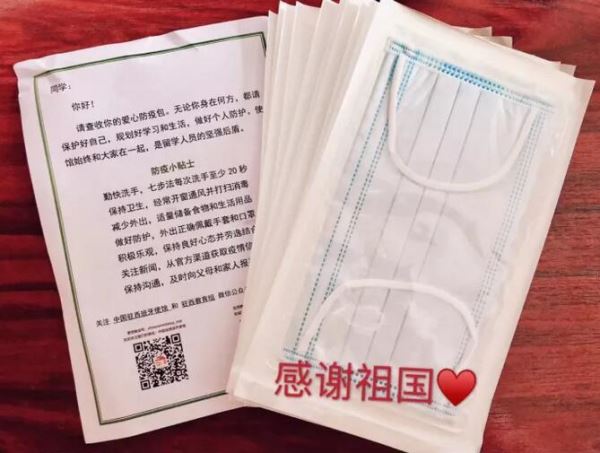 同学：
你好！
请查收你的爱心防疫包。无论你身在何方，都请
保护好自己，规划好学习和生活，做好个人防护。使
馆始终和大家在一起，是留学人员的坚强后盾。
防疫小贴士
勤快洗手，七步法每次洗手至少 20 秒
保持卫生，经常开窗通风并打扫消毒
减少外出，适量储备食物和生活用品
做好防护，外出正确佩戴手套和口罩
积极乐观，保持良好心态并劳逸结合
关注新闻，从官方渠道获取疫情信
保持沟通，及时向父母和家人报
关注 中国驻西班牙使馆 和 驻西教育组 微信公众
感谢祖国❤